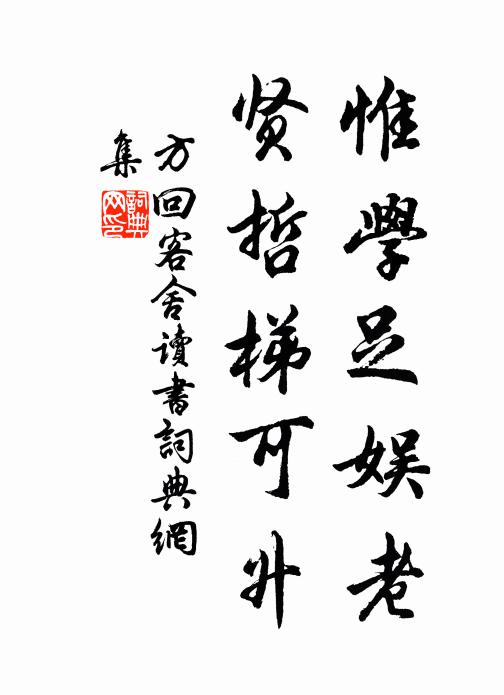 惟學足娱老
贤哲梯可升
方回客舍讀書詞典網
集
詞典网印